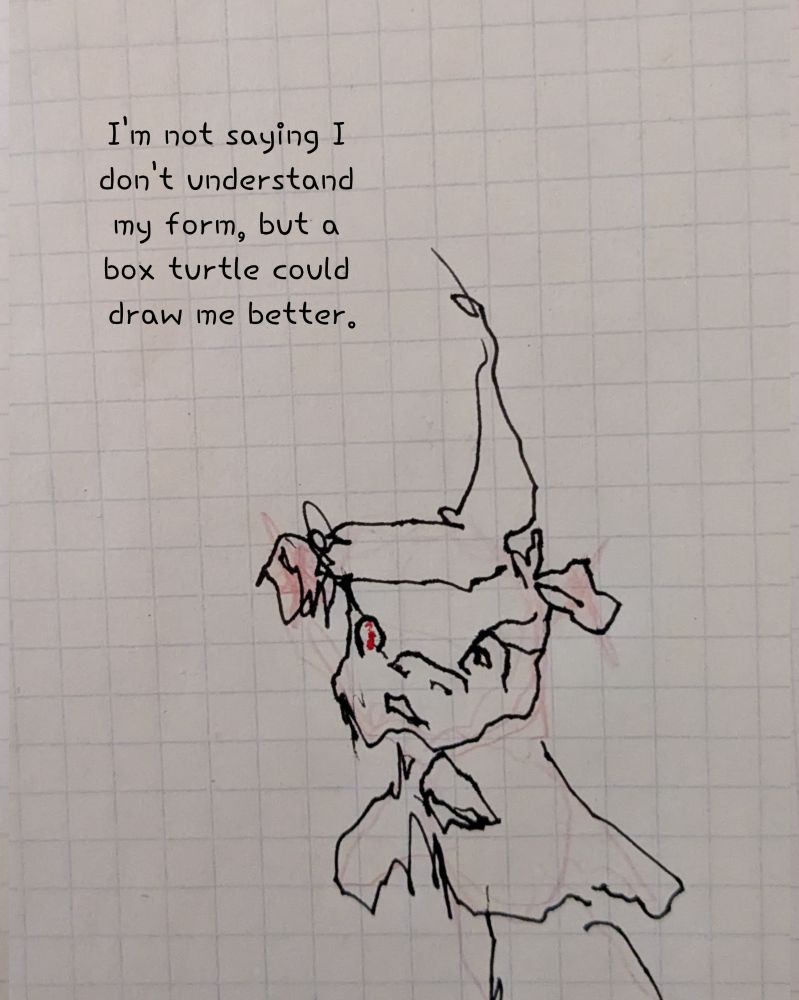 I'm not saying I
don't understand
my form, but a
box turtle could
draw me better.